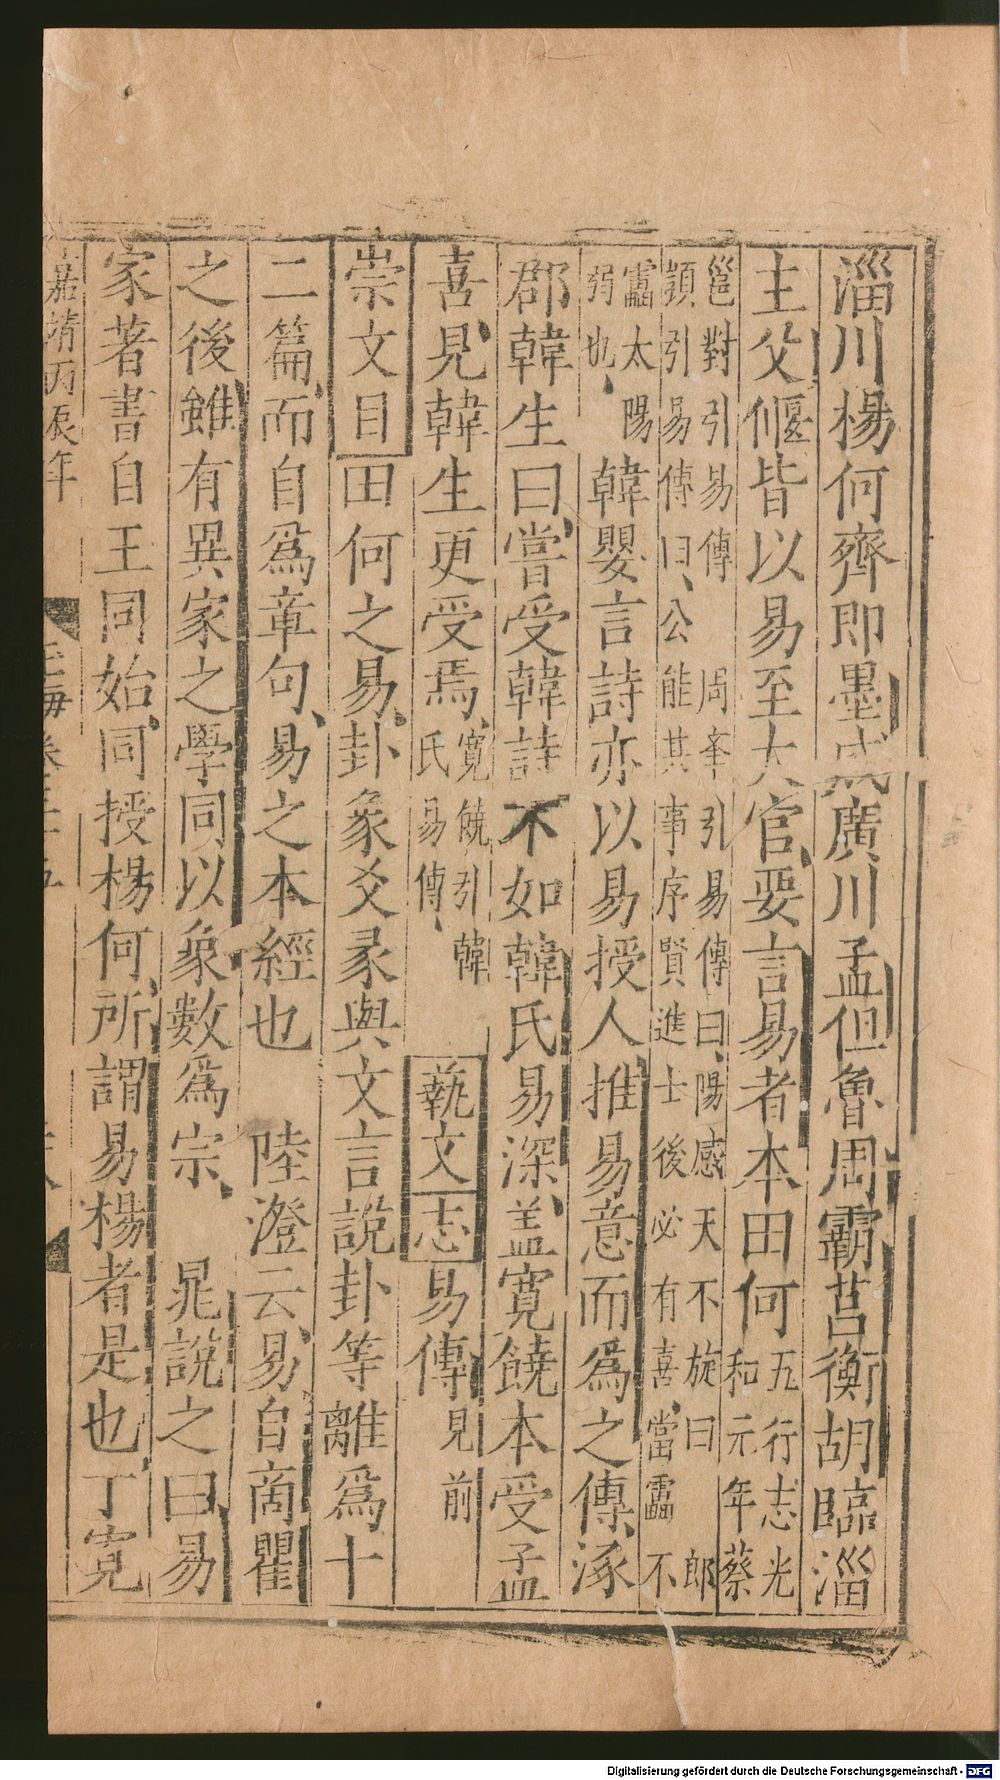 淄川楊何齊即墨成廣川孟但魯周霸莒衡胡臨淄
主父偃皆以易至大官要言易者本田何五行志光和元年蔡
邕對引易傳 周舉引易傳曰陽感天不旋日 郎
顗引易傳曰公能其事序賢進士後必有喜當靁不
靁太陽弱也 韓嬰言詩亦以易授人推易意而爲之傳涿
郡韓生曰嘗受韓詩不如韓氏易深盖寬饒本受孟
喜見韓生更受焉寬饒引韓氏易傳 蓺文志易傳見前
崇文目田何之易卦象爻彖與文言說卦等離爲十
二篇而自爲章句易之本經也 陸澄云易自商瞿
之後雖有異家之學同以象數爲宗 晁說之曰易
家著書自王同始同授楊何所謂易楊者是也丁寬
嘉靖丙辰年
Digitalisierung gefördert durch die Deutsche Forschungsgemeinschaft - DFG